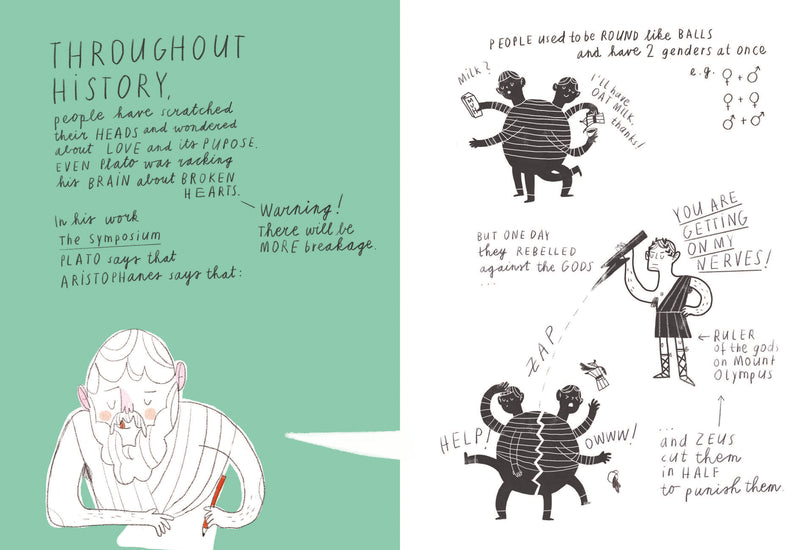 THROUGHOUT
HISTORY,
people have scratched
their HEADS and wondered
about LOVE and its PUPOSE.
EVEN Plato was racking
his BRAIN about BROKEN
HEARTS.
Warning!
There will be
MORE breakage.
In his work
The Symposium
PLATO says that
ARISTOPHanes says that:
PEOPLE used to be ROUND like BALLS
and have 2 genders at once
e.g. ♀ + ♂
♀ + ♀
♂ + ♂
MILK?
I'll have
OAT MILK,
thanks!
BUT ONE DAY
they REBELLED
against the GODS
...
YOU ARE
GETTING
ON MY
NERVES!
ZAP
← RULER
of the gods
on Mount
Olympus
HELP!
OWWW!
...
and ZEUS
cut them
in HALF
to punish them.